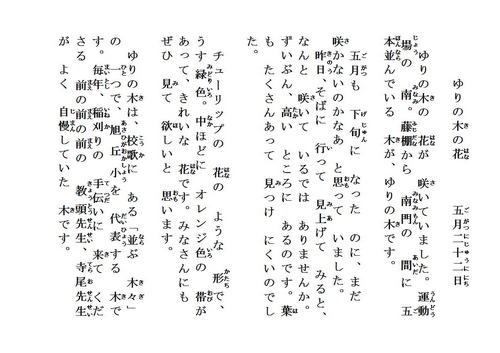 ゆりの木の花　五月二十二日
ゆりの木の 花が 咲いていました。運動
場の 南。藤棚から 南門の 間に 五
本並んでいる 木が、ゆりの木です。
五月も 下旬に なった のに、まだ
咲かないのかなあ と思って いました。
昨日、そばに 行って 見上げて みると、
なんと 咲いて いるでは ありませんか。
ずいぶん、高い ところに あるのです。葉
が たくさん あって 見つけ にくいのでし
た。
チューリップの 花の ような 形で、
うす 緑色。中ほどに オレンジ色の 帯が
あって、きれいな 花です。みなさんにも
ぜひ 見て 欲しいと 思います。
ゆりの木は、校歌に ある「並ぶ 木々」
の 一つで、旭丘小を 代表する 木で
す。毎年、稲刈りの 手伝いに 来て くだ
さる 前の前の前の 教頭先生、寺尾先生
が よく 自慢していた 木です。